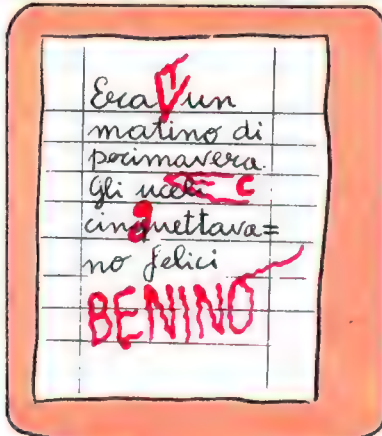 Era V un
matino di
primavera.
Gli uceli c
cinguettava=
no felici
BENINO